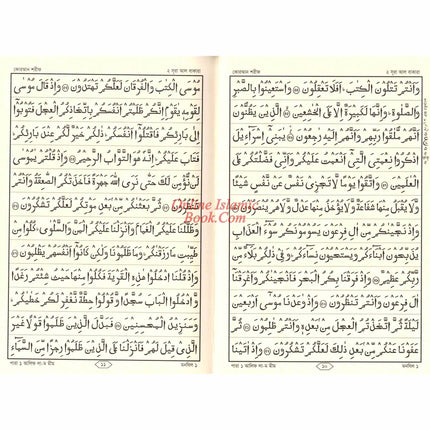 কোরআন শরীফ ২ সূরা আল বাকারা
وَاَنْتُمْ تَتْلُوْنَ الْكِتٰبَ ؕ اَفَلَا تَعْقِلُوْنَ ۝ وَاسْتَعِيْنُوْا بِالصَّبْرِ
وَالصَّلٰوةِ ؕ وَاِنَّهَا لَكَبِيْرَةٌ اِلَّا عَلَى الْخٰشِعِيْنَ ۝ الَّذِيْنَ يَظُنُّوْنَ
اَنَّهُمْ مُّلٰقُوْا رَبِّهِمْ وَاَنَّهُمْ اِلَيْهِ رٰجِعُوْنَ ۝ يٰبَنِيْۤ اِسْرَآءِيْلَ
اذْكُرُوْا نِعْمَتِيَ الَّتِيْۤ اَنْعَمْتُ عَلَيْكُمْ وَاَنِّيْ فَضَّلْتُكُمْ عَلَى
الْعٰلَمِيْنَ ۝ وَاتَّقُوْا يَوْمًا لَّا تَجْزِيْ نَفْسٌ عَنْ نَّفْسٍ شَيْئًا
وَّلَا يُقْبَلُ مِنْهَا شَفَاعَةٌ وَّلَا يُؤْخَذُ مِنْهَا عَدْلٌ وَّلَا هُمْ يُنْصَرُوْنَ ۝
وَاِذْ نَجَّيْنٰكُمْ مِّنْ اٰلِ فِرْعَوْنَ يَسُوْمُوْنَكُمْ سُوْٓءَ الْعَذَابِ
يُذَبِّحُوْنَ اَبْنَآءَكُمْ وَيَسْتَحْيُوْنَ نِسَآءَكُمْ ؕ وَفِيْ ذٰلِكُمْ بَلَآءٌ مِّنْ
رَّبِّكُمْ عَظِيْمٌ ۝ وَاِذْ فَرَقْنَا بِكُمُ الْبَحْرَ فَاَنْجَيْنٰكُمْ وَاَغْرَقْنَاۤ
اٰلَ فِرْعَوْنَ وَاَنْتُمْ تَنْظُرُوْنَ ۝ وَاِذْ وٰعَدْنَا مُوْسٰۤى اَرْبَعِيْنَ
لَيْلَةً ثُمَّ اتَّخَذْتُمُ الْعِجْلَ مِنْۢ بَعْدِهٖ وَاَنْتُمْ ظٰلِمُوْنَ ۝ ثُمَّ
عَفَوْنَا عَنْكُمْ مِّنْۢ بَعْدِ ذٰلِكَ لَعَلَّكُمْ تَشْكُرُوْنَ ۝ وَاِذْ اٰتَيْنَا
পারা ১ আলিফ লা-ম মীম ১০ মনযিল ১
কোরআন শরীফ ২ সূরা আল বাকারা
مُوْسَى الْكِتٰبَ وَالْفُرْقَانَ لَعَلَّكُمْ تَهْتَدُوْنَ ۝ وَاِذْ قَالَ مُوْسٰى
لِقَوْمِهٖ يٰقَوْمِ اِنَّكُمْ ظَلَمْتُمْ اَنْفُسَكُمْ بِاتِّخَاذِكُمُ الْعِجْلَ فَتُوْبُوْۤا
اِلٰى بَارِئِكُمْ فَاقْتُلُوْۤا اَنْفُسَكُمْ ؕ ذٰلِكُمْ خَيْرٌ لَّكُمْ عِنْدَ بَارِئِكُمْ ؕ
فَتَابَ عَلَيْكُمْ ؕ اِنَّهٗ هُوَ التَّوَّابُ الرَّحِيْمُ ۝ وَاِذْ قُلْتُمْ يٰمُوْسٰى
لَنْ نُّؤْمِنَ لَكَ حَتّٰى نَرَى اللّٰهَ جَهْرَةً فَاَخَذَتْكُمُ الصّٰعِقَةُ وَاَنْتُمْ
تَنْظُرُوْنَ ۝ ثُمَّ بَعَثْنٰكُمْ مِّنْۢ بَعْدِ مَوْتِكُمْ لَعَلَّكُمْ تَشْكُرُوْنَ ۝
وَظَلَّلْنَا عَلَيْكُمُ الْغَمَامَ وَاَنْزَلْنَا عَلَيْكُمُ الْمَنَّ وَالسَّلْوٰى ؕ كُلُوْا مِنْ
طَيِّبٰتِ مَا رَزَقْنٰكُمْ ؕ وَمَا ظَلَمُوْنَا وَلٰكِنْ كَانُوْۤا اَنْفُسَهُمْ يَظْلِمُوْنَ ۝
وَاِذْ قُلْنَا ادْخُلُوْا هٰذِهِ الْقَرْيَةَ فَكُلُوْا مِنْهَا حَيْثُ شِئْتُمْ رَغَدًا
وَّادْخُلُوا الْبَابَ سُجَّدًا وَّقُوْلُوْا حِطَّةٌ نَّغْفِرْ لَكُمْ خَطٰيٰكُمْ ؕ
وَسَنَزِيْدُ الْمُحْسِنِيْنَ ۝ فَبَدَّلَ الَّذِيْنَ ظَلَمُوْا قَوْلًا غَيْرَ
الَّذِيْ قِيْلَ لَهُمْ فَاَنْزَلْنَا عَلَى الَّذِيْنَ ظَلَمُوْا رِجْزًا مِّنَ السَّمَآءِ
পারা ১ আলিফ লা-ম মীম ১১ মনযিল ১
Online Islamic
Book.Com